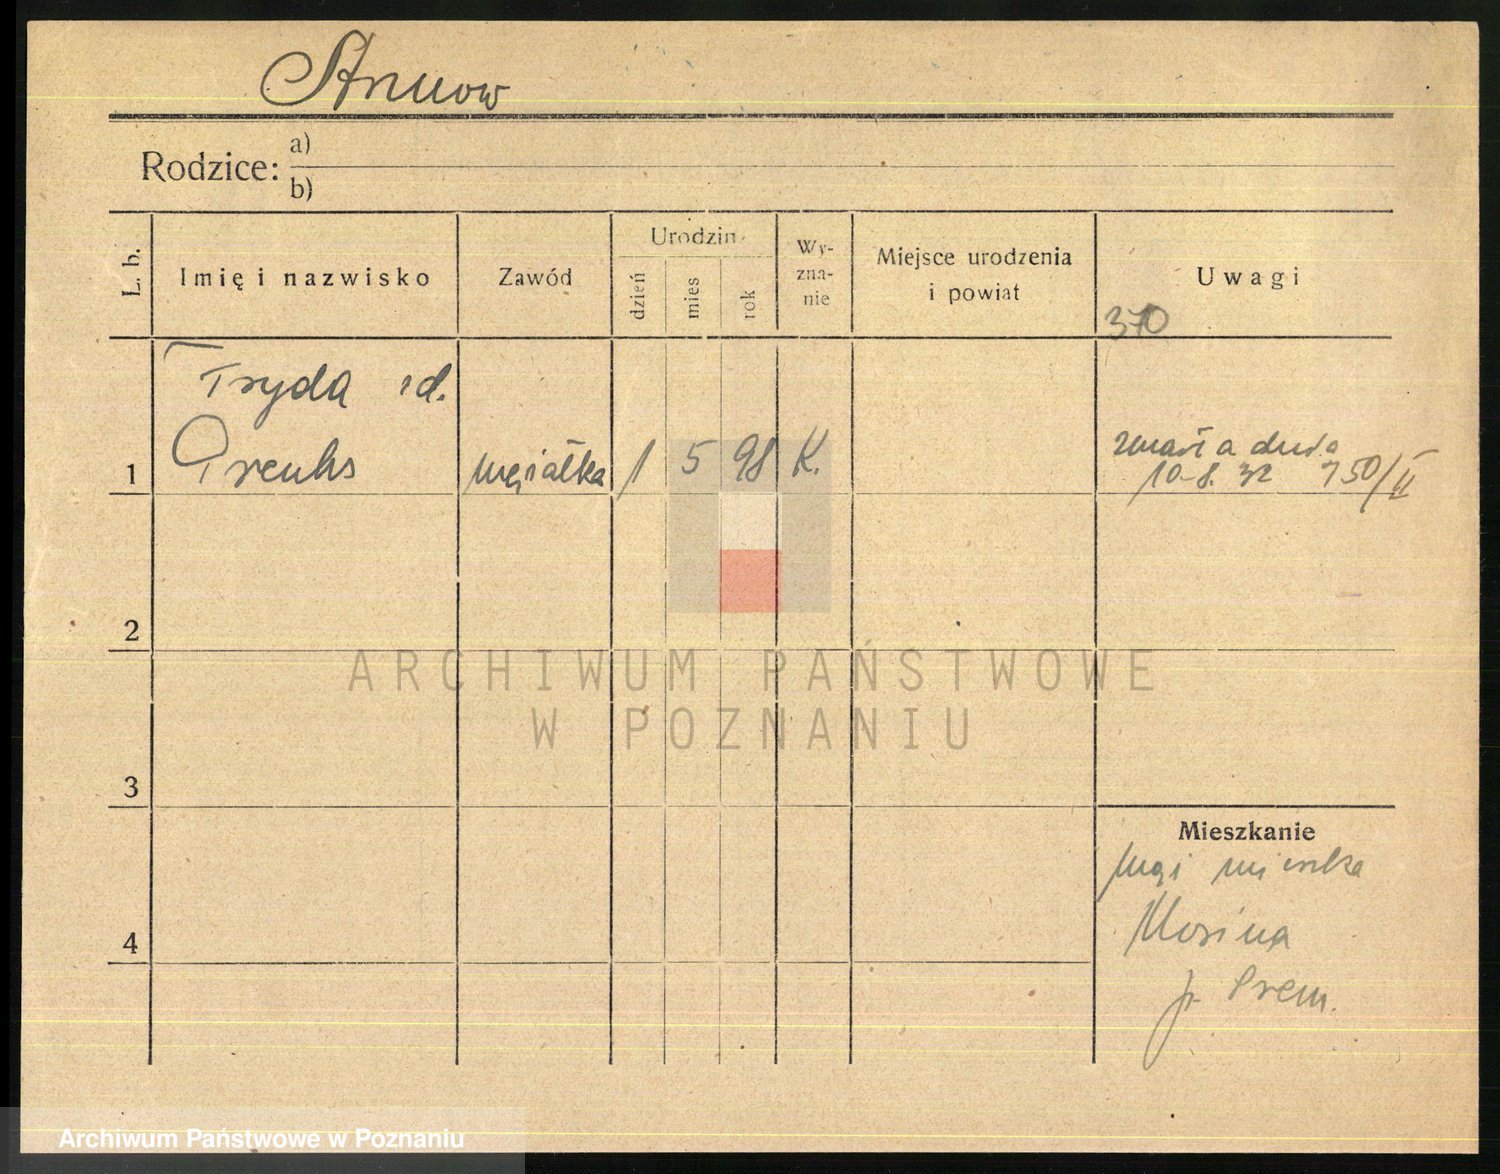 Struow
Rodzice: a)
b)
L. b.
Imię i nazwisko
Zawód
Urodzin
dzień
mies
rok
Wy-
zna-
nie
Miejsce urodzenia
i powiat
Uwagi
370
Fryda
1
mężatka
1
5
98
K.
zmarła dnia
10-8. 32 750/II
2
3
4
Mieszkanie
mąż mieszka
Mosina
p. Śrem.
ARCHIWUM PAŃSTWOWE
W POZNANIU
Archiwum Państwowe w Poznaniu